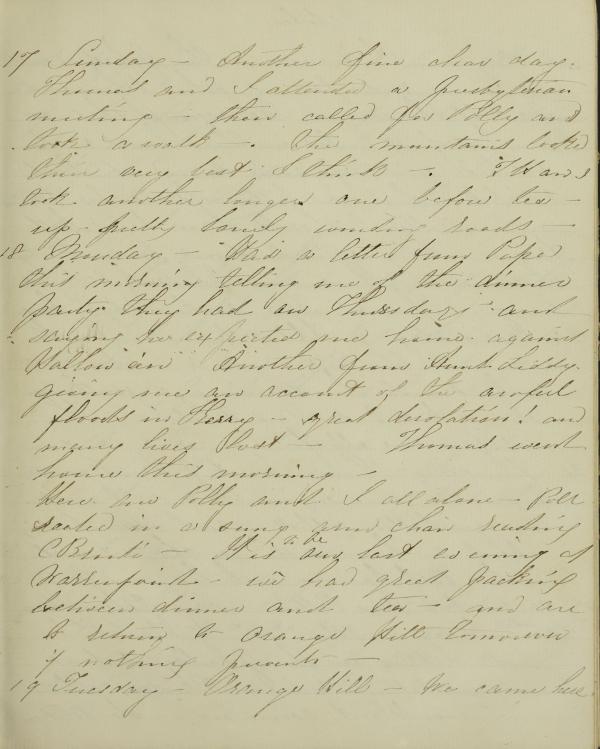 17 Sunday - Another fine clear day.
Thomas and I attended a Presbyterian
meeting - then called for Polly and
took a walk -. The mountains looked
their very best I think -. T H and I
took another longer one before tea -
up pretty lonely winding roads -
18 Monday - Had a letter from Papa
this morning telling me of the dinner
party they had on Thursday - and
saying he expected me home against
Hallow'een Another from Aunt Liddy.
giving me an account of the awful
floods in Kerry - great desolation! and
many lives lost - Thomas went
home this morning -
Here are Polly and I all alone - Poll
seated in a snug arm chair reading
C Bronté - It is to be our last evening at
Warrenpoint - we had great packing
between dinner and tea - and are
to return to Orange Hill tomorrow
if nothing prevents -
19 Tuesday - Orange Hill - We came here